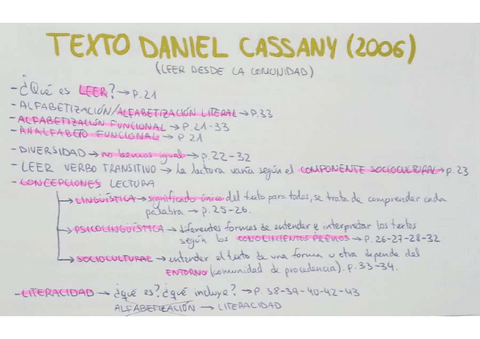 TEXTO DANIEL CASSANY (2006)
(LEER DESDE LA COMUNIDAD)
- ¿Qué es LEER? → P.21
- ALFABETIZACIÓN/ALFABETIZACIÓN LITERAL → P.33
- ALFABETIZACIÓN FUNCIONAL → P.21-33
- ANALFABETO FUNCIONAL → P.21
- DIVERSIDAD → no leemos igual → p.22-32
- LEER VERBO TRANSITIVO → la lectura varía según el COMPONENTE SOCIOCULTURAL → p.23
- CONCEPCIONES LECTURA
→ LINGÜÍSTICA → significado único del texto para todos, se trata de comprender cada
palabra → p.25-26.
→ PSICOLINGÜÍSTICA → diferentes formas de entender e interpretar los textos
según los CONOCIMIENTOS PREVIOS → P.26-27-28-32
→ SOCIOCULTURAL → entender el texto de una forma u otra depende del
ENTORNO (comunidad de procedencia). P.33-34.
- LITERACIDAD → ¿qué es? ¿qué incluye? → P.38-39-40-42-43
ALFABETIZACIÓN → LITERACIDAD